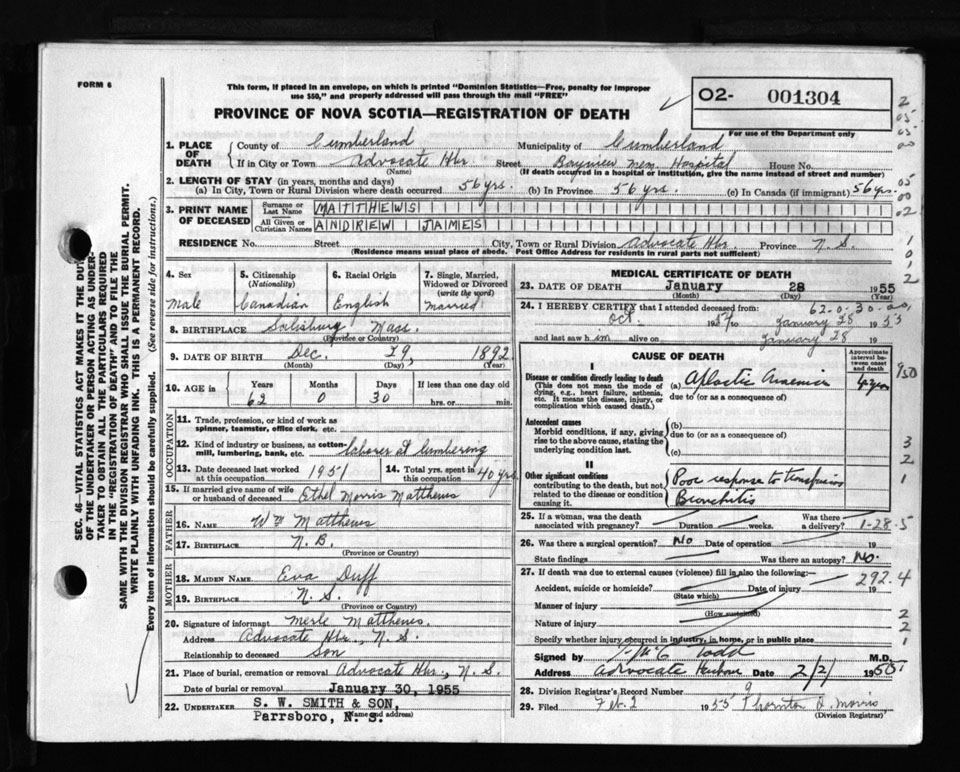 FORM 6
This form, if placed in an envelope, on which is printed "Dominion Statistics—Free, penalty for improper
use $50," and properly addressed will pass through the mail "FREE"
PROVINCE OF NOVA SCOTIA—REGISTRATION OF DEATH
O2- 001304
For use of the Department only
SEC. 46—VITAL STATISTICS ACT MAKES IT THE DUTY
OF THE UNDERTAKER OR PERSON ACTING AS UNDER-
TAKER TO OBTAIN ALL THE PARTICULARS REQUIRED
IN THE "REGISTRATION OF DEATH" AND TO FILE THE
SAME WITH THE DIVISION REGISTRAR WHO SHALL ISSUE THE BURIAL PERMIT.
WRITE PLAINLY WITH UNFADING INK. THIS IS A PERMANENT RECORD.
Every item of information should be carefully supplied. (See reverse side for instructions.)
1. PLACE OF DEATH
County of Cumberland Municipality of Cumberland
If in City or Town Advocate Hbr Street Bayview Mem. Hospital House No.
(Name) (If death occurred in a hospital or institution, give the name instead of street and number)
2. LENGTH OF STAY (in years, months and days)
(a) In City, Town or Rural Division where death occurred 56 yrs. (b) In Province 56 yrs. (c) In Canada (if immigrant) 56 yrs.
3. PRINT NAME OF DECEASED
Surname or Last Name MATTHEWS
All Given or Christian Names ANDREW JAMES
RESIDENCE No. Street City, Town or Rural Division Advocate Hbr. Province N. S.
(Residence means usual place of abode. Post Office Address for residents in rural parts not sufficient)
4. Sex
Male
5. Citizenship
(Nationality)
Canadian
6. Racial Origin
English
7. Single, Married,
Widowed or Divorced
(write the word)
Married
8. BIRTHPLACE Salisburg Mass.
(Province or Country)
9. DATE OF BIRTH Dec. 29, 1892
(Month) (Day) (Year)
10. AGE in
Years Months Days If less than one day old
62 0 30 hrs. or min.
OCCUPATION
11. Trade, profession, or kind of work as
spinner, teamster, office clerk, etc.
12. Kind of industry or business, as cotton-
mill, lumbering, bank, etc. laborer at lumbering
13. Date deceased last worked
at this occupation 1951
14. Total yrs. spent in
this occupation 40 yrs
15. If married give name of wife
or husband of deceased Ethel Morris Matthews
FATHER
16. NAME Wm Matthews
17. BIRTHPLACE N. B.
(Province or Country)
MOTHER
18. MAIDEN NAME Eva Duff
19. BIRTHPLACE N. S.
(Province or Country)
20. Signature of informant Merle Matthews.
Address Advocate Hbr., N. S.
Relationship to deceased Son
21. Place of burial, cremation or removal Advocate Hbr., N. S.
Date of burial or removal January 30, 1955
22. UNDERTAKER S. W. SMITH & SON,
Parrsboro, N. S.
(Name and address)
MEDICAL CERTIFICATE OF DEATH
23. DATE OF DEATH January 28 1955
(Month) (Day) (Year)
62.0.30
24. I HEREBY CERTIFY that I attended deceased from:
Oct. 1954 to January 28 1955
and last saw him alive on January 28 19
CAUSE OF DEATH
Approximate
interval between
onset and
death
I
Disease or condition directly leading to death
(This does not mean the mode of
dying, e.g., heart failure, asthenia,
etc. It means the disease, injury, or
complication which caused death.)
(a) Aplastic Anaemia
due to (or as a consequence of)
Antecedent causes
Morbid conditions, if any, giving
rise to the above cause, stating the
underlying condition last.
(b)
due to (or as a consequence of)
(c)
II
Other significant conditions
contributing to the death, but not
related to the disease or condition
causing it.
Poor response to transfusions
Bronchitis
25. If a woman, was the death
associated with pregnancy? Duration weeks. Was there
a delivery?
1-28-5
26. Was there a surgical operation? No Date of operation 19
State findings Was there an autopsy? No.
27. If death was due to external causes (violence) fill in also the following:—
292.4
Accident, suicide or homicide? Date of injury 19
(State which)
Manner of injury
(How sustained)
Nature of injury
Specify whether injury occurred in industry, in home, or in public place
Signed by Todd M.D.
Address Advocate Harbour Date 2/2/ 1955
28. Division Registrar's Record Number 9
29. Filed Feb. 2 1955 Thornton D. Morris
(Division Registrar)